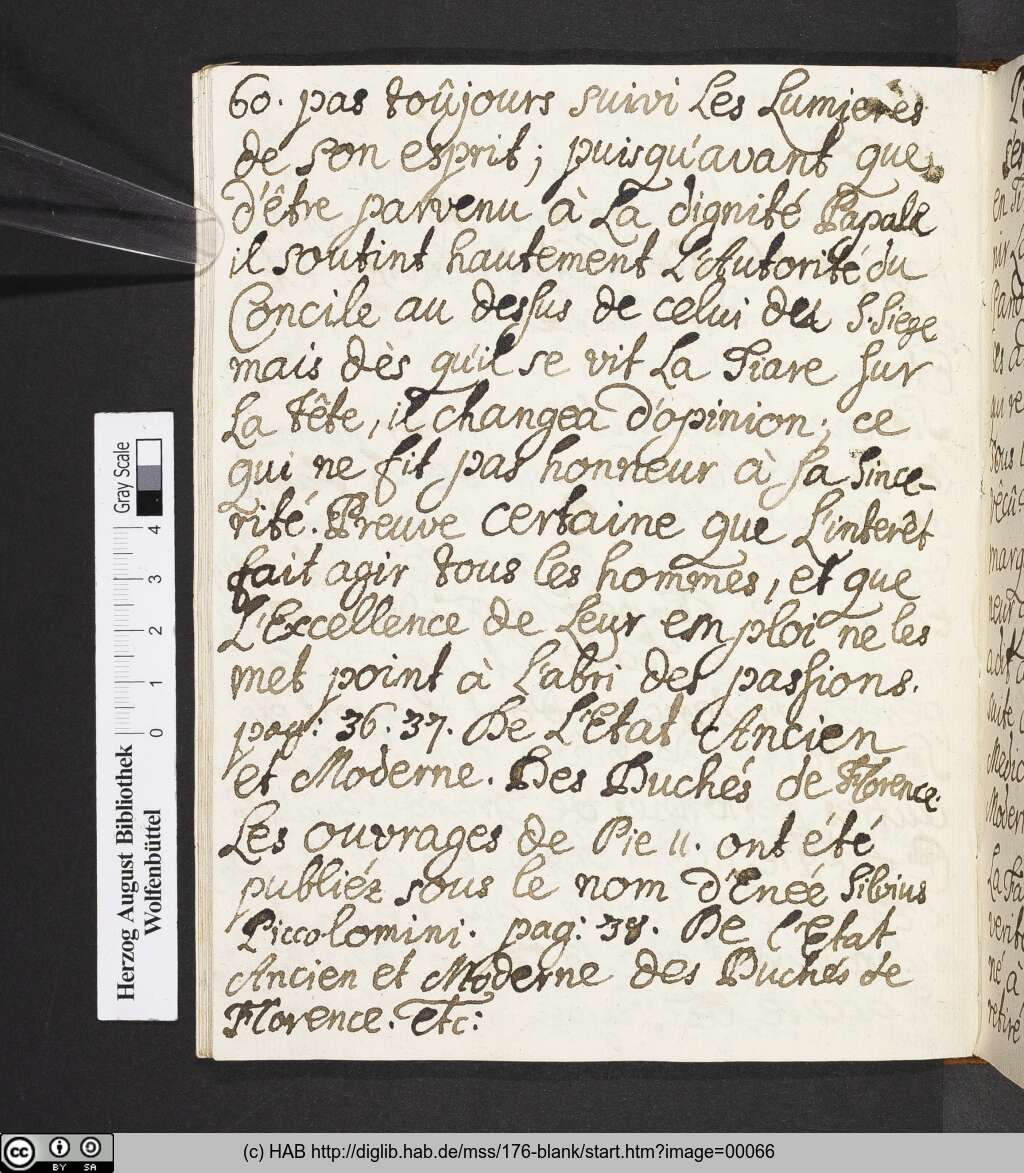 60. pas toûjours suivi Les Lumieres
de son esprit; puisqu'avant que
d'être parvenu à La dignité Papale
il soutint hautement L'Autorité du
Concile au dessus de celui du S. Siege
mais dès qu'il se vit La Tiare sur
La Tête, il changea d'opinion; ce
qui ne fit pas honneur à sa Since-
rité. Preuve certaine que L'interêt
fait agir tous les hommes, et que
L'Excellence de Leur emploi ne les
met point à L'abri des passions.
pag: 36. 37. De L'Etat Ancien
et Moderne. Des Duchés de Florence.
Les ouvrages de Pie II. ont été
publiéz sous le nom d'Eneé Silvius
Piccolomini. pag: 38. De l'Etat
Ancien et Moderne des Duchés de
Florence. Etc:
Gray Scale
4
3
2
1
0
Herzog August Bibliothek
Wolfenbüttel
cc BY SA
(c) HAB http://diglib.hab.de/mss/176-blank/start.htm?image=00066